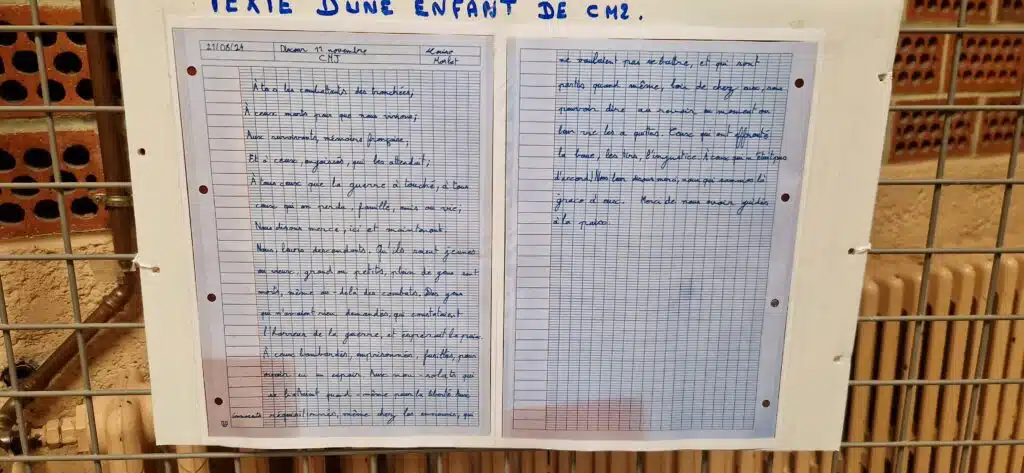 TEXTE D'UNE ENFANT DE CM2.
21/08/24
Discour 11 novembre
CMJ
Louise
À tous les combattants des tranchées,
À ceux morts pour que nous vivions;
Aux survivants, mémoire française,
Et à ceux, angoissés, qui les attendait;
À tous ceux que la guerre à touché, à tous
ceux qui on perdu: famille, amis ou vie;
Nous disons merci, ici et maintenant.
Nous, leurs descendants. Qu'ils soient jeunes
ou vieux, grand ou petits, plein de gens sont
morts, même au-delà des combats. Des gens
qui n'avaient rien demandés, qui constataient
l'horreur de la guerre, et espérait la paix.
À ceux bombardés, emprisonnés, fusillés, pour
avoir eu un espoir. Aux non-soldats qui
se battaient quand-même pour la liberté. Aux
innocents réquisitionnés, même chez les ennemis, qui
ne voulaient pas se battre, et qui sont
partis quand même, loin de chez eux, sans
pouvoir dire au revoir au moment ou
leur vie les a quittés. Ceux qui ont affronté
la boue, les tirs, l'injustice. À ceux qui n'était pas
d'accord! Nous leur disons merci, nous qui sommes là
grace à eux. Merci de nous avoir guidés
à la paix.